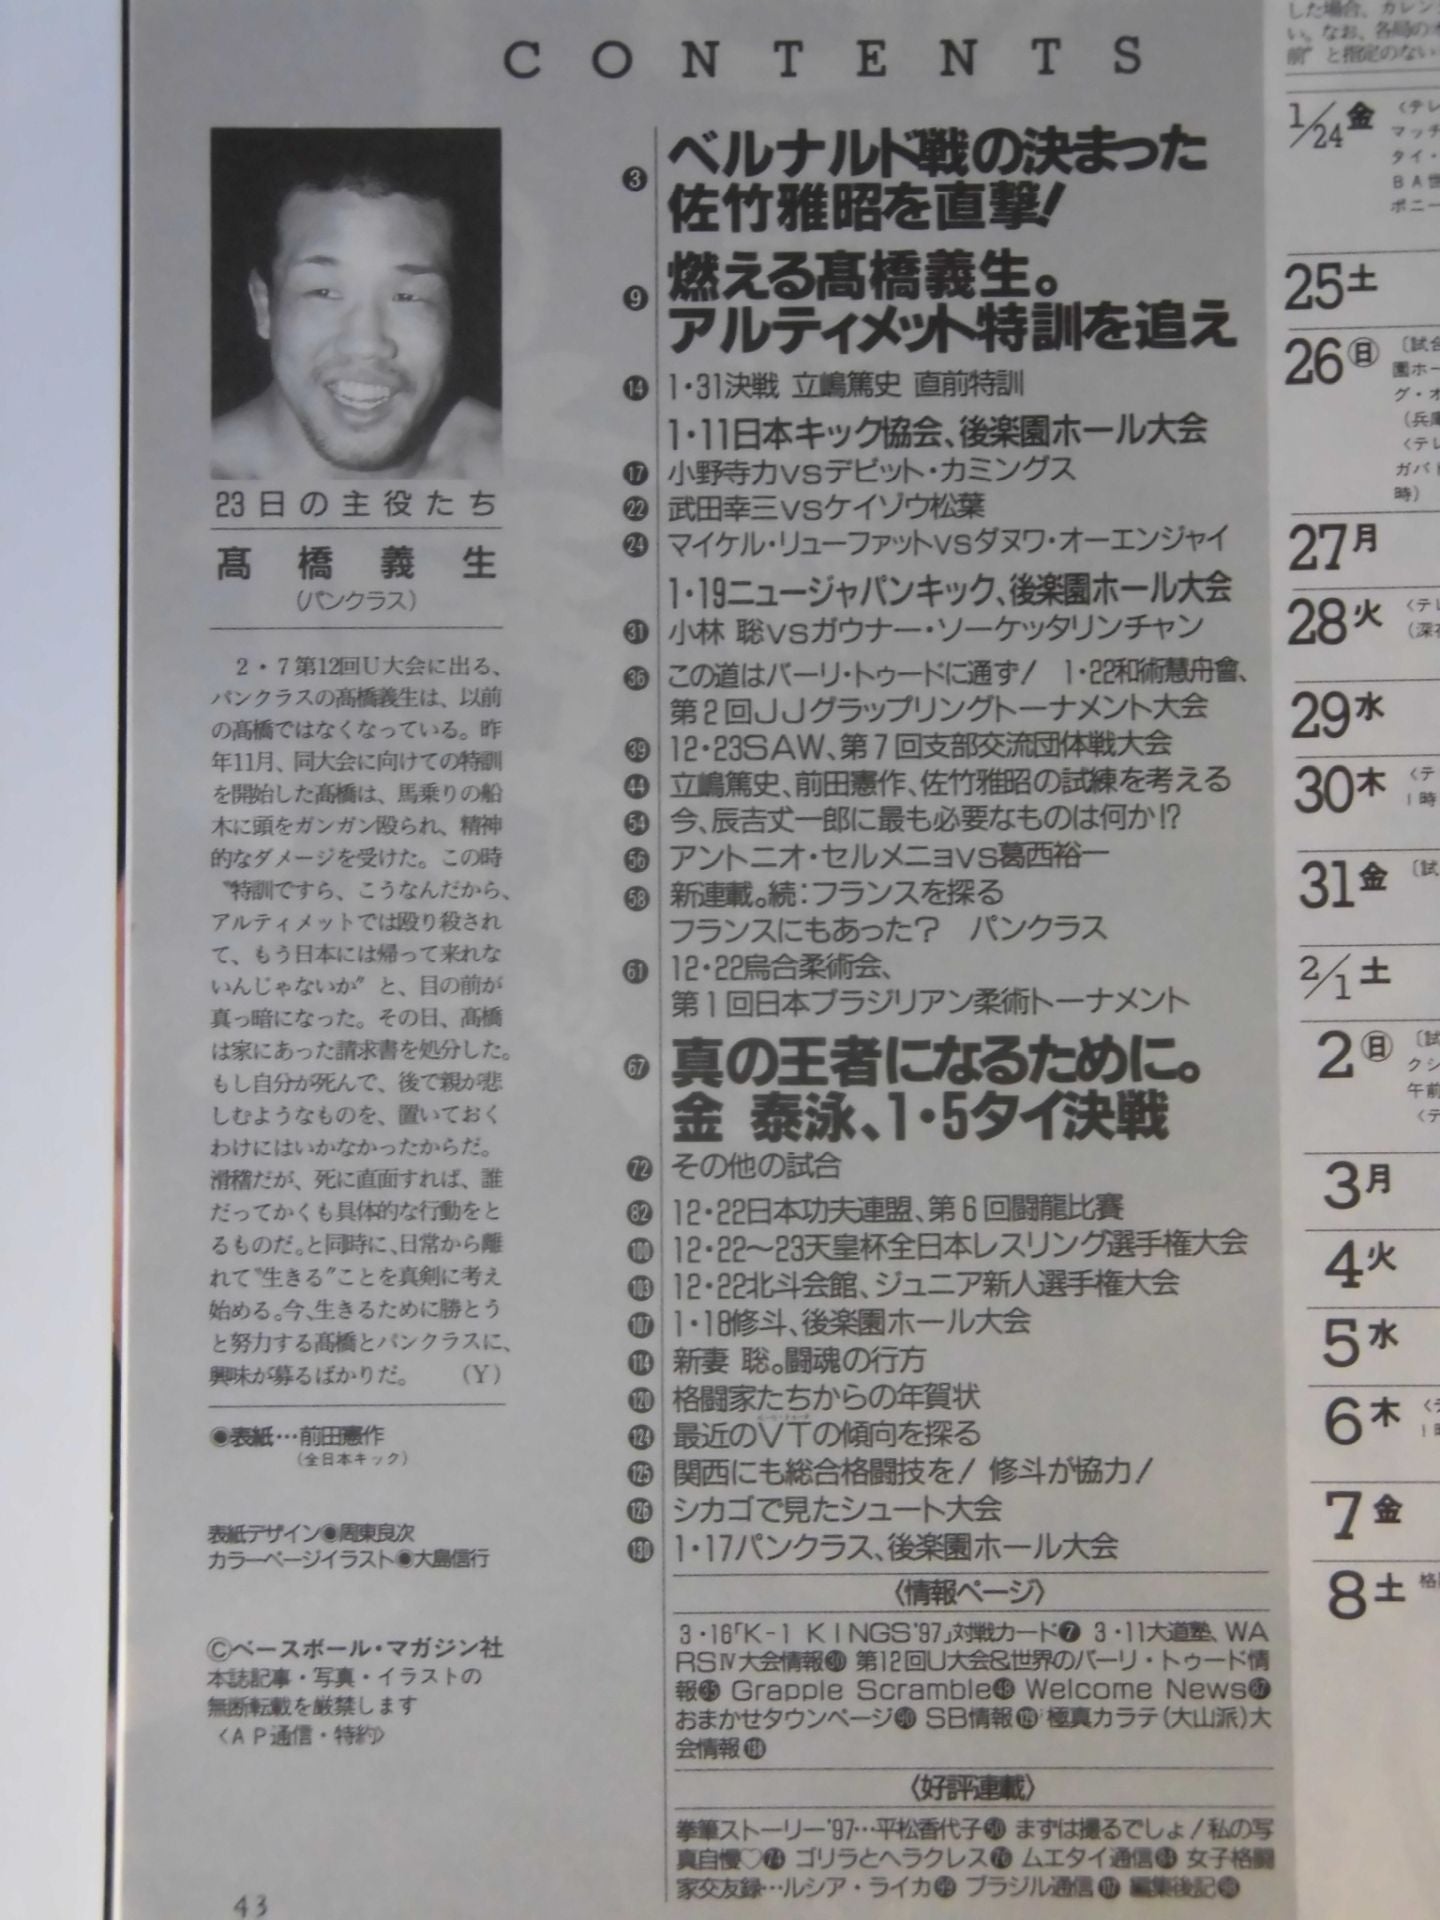 CONTENTS
23日の主役たち
髙橋義生
(パンクラス)
2・7第12回U大会に出る、
パンクラスの髙橋義生は、以前
の髙橋ではなくなっている。昨
年11月、同大会に向けての特訓
を開始した髙橋は、馬乗りの船
木に頭をガンガン殴られ、精神
的なダメージを受けた。この時
〝特訓ですら、こうなんだから、
アルティメットでは殴り殺され
て、もう日本には帰って来れな
いんじゃないか〟と、目の前が
真っ暗になった。その日、髙橋
は家にあった請求書を処分した。
もし自分が死んで、後で親が悲
しむようなものを、置いておく
わけにはいかなかったからだ。
滑稽だが、死に直面すれば、誰
だってかくも具体的な行動をと
るものだ。と同時に、日常から離
れて〝生きる〟ことを真剣に考え
始める。今、生きるために勝とう
と努力する髙橋とパンクラスに、
興味が募るばかりだ。 (Y)
◉表紙…前田憲作
(全日本キック)
表紙デザイン◉周東良次
カラーページイラスト◉大島信行
©ベースボール・マガジン社
本誌記事・写真・イラストの
無断転載を厳禁します
〈AP通信・特約〉
43
3 ベルナルド戦の決まった
佐竹雅昭を直撃!
9 燃える髙橋義生。
アルティメット特訓を追え
14 1・31決戦 立嶋篤史 直前特訓
1・11日本キック協会、後楽園ホール大会
17 小野寺力vsデビット・カミングス
22 武田幸三vsケイゾウ松葉
24 マイケル・リューファットvsダヌワ・オーエンジャイ
1・19ニュージャパンキック、後楽園ホール大会
31 小林 聡vsガウナー・ソーケッタリンチャン
36 この道はバーリ・トゥードに通ず! 1・22和術慧舟會、
第2回JJグラップリングトーナメント大会
39 12・23SAW、第7回支部交流団体戦大会
44 立嶋篤史、前田憲作、佐竹雅昭の試練を考える
54 今、辰吉丈一郎に最も必要なものは何か!?
56 アントニオ・セルメニョvs葛西裕一
58 新連載。続:フランスを探る
フランスにもあった? パンクラス
61 12・22烏合柔術会、
第1回日本ブラジリアン柔術トーナメント
67 真の王者になるために。
金 泰泳、1・5タイ決戦
72 その他の試合
82 12・22日本功夫連盟、第6回闘龍比賽
100 12・22〜23天皇杯全日本レスリング選手権大会
103 12・22北斗会館、ジュニア新人選手権大会
107 1・18修斗、後楽園ホール大会
114 新妻 聡。闘魂の行方
120 格闘家たちからの年賀状
124 最近のVTの傾向を探る
125 関西にも総合格闘技を! 修斗が協力!
126 シカゴで見たシュート大会
130 1・17パンクラス、後楽園ホール大会
〈情報ページ〉
3・16「K-1 KINGS'97」対戦カード7 3・11大道塾、WA
RSⅣ大会情報30 第12回U大会&世界のバーリ・トゥード情
報35 Grapple Scramble48 Welcome News87
おまかせタウンページ90 SB情報129 極真カラテ(大山派)大
会情報
〈好評連載〉
拳筆ストーリー'97…平松香代子50 まずは撮るでしょ!私の写
真自慢♡74 ゴリラとヘラクレス76 ムエタイ通信 女子格闘
家交友録…ルシア・ライカ99 ブラジル通信 編集後記
した場合、カレン
い。なお、各局の
前〟と指定のない
1/24金
〈テレ
マッチ
タイ・
BA世
ポニー
25土
26日
〔試合
園ホー
グ・オ
(兵庫
〈テレ
ガバト
時)
27月
28火
〈テレ
(深夜
29水
30木
〈テ
1時
31金
〔試
2/1土
2日
〔試
クシ
午前
〈テ
3月
4火
5水
6木
1時
7金
8土
格